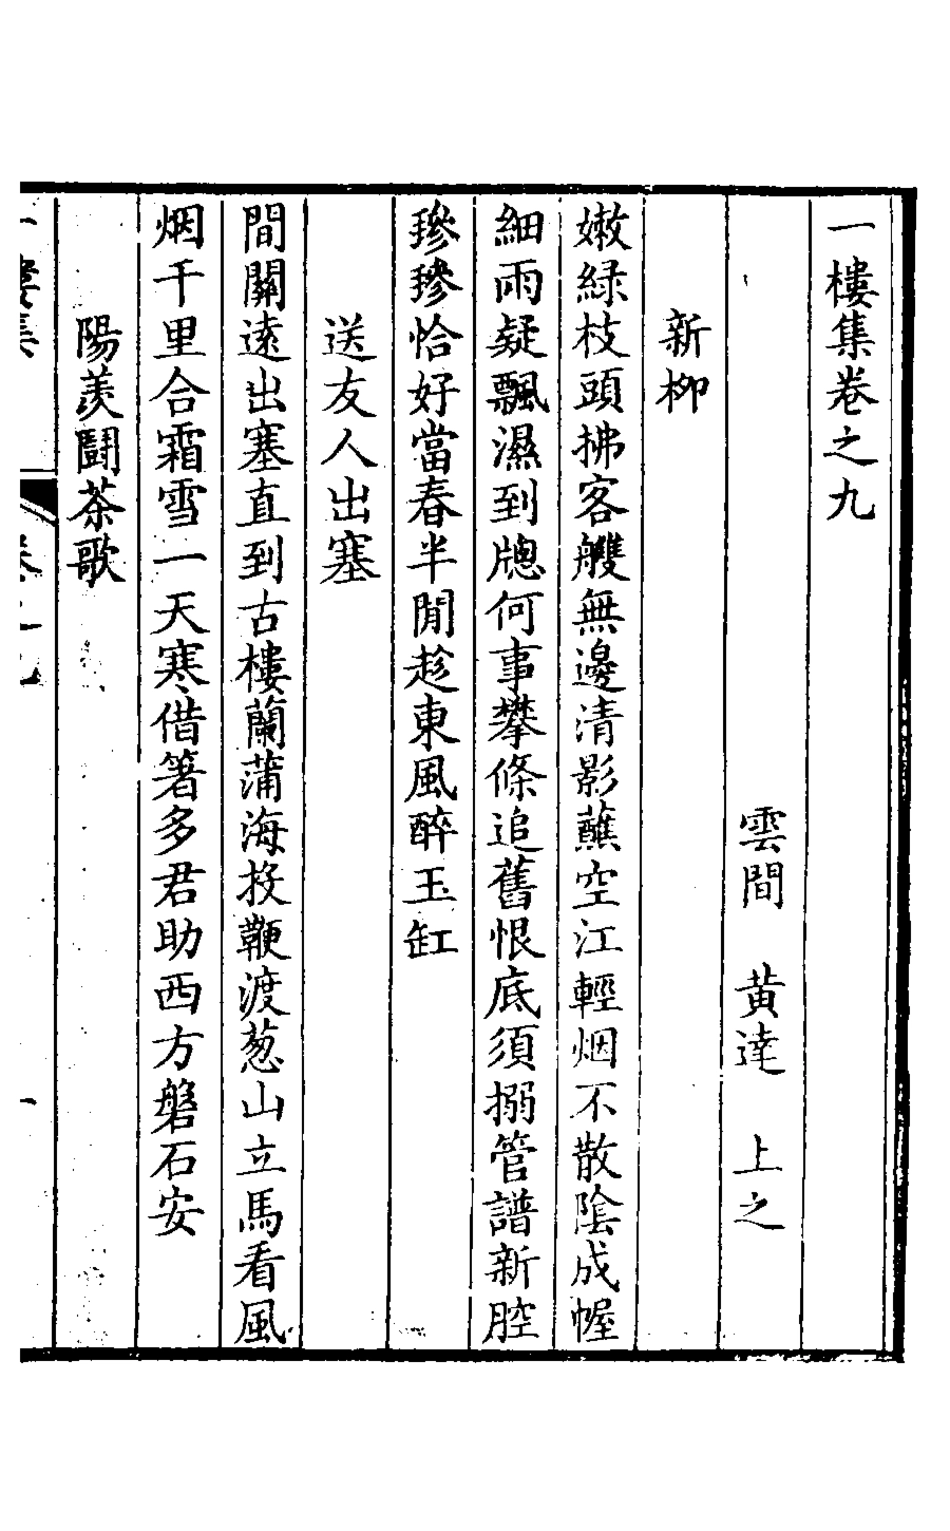 一樓集卷之九
雲間 黃達 上之
新柳
嫩綠枝頭拂客艭無邊清影蘸空江輕烟不散陰成幄
細雨疑飄濕到牕何事攀條追舊恨底須搦管譜新腔
毿毿恰好當春半閒趁東風醉玉缸
送友人出塞
間關遠出塞直到古樓蘭蒲海投鞭渡葱山立馬看風
烟千里合霜雪一天寒借箸多君助西方磐石安
陽羨鬪茶歌
一樓集 卷之九 一